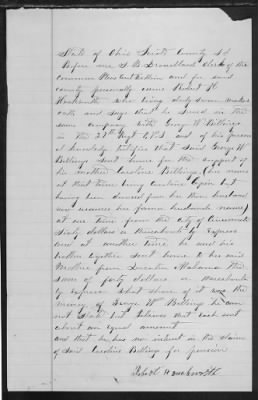 State of Ohio Scioto County SS
Before me S B Drouillard Clerk of the
Common Pleas Court within and for said
county personally came Robert H
Hawkworth who being duly sworn makes
oath and says that he served in the
same company with George W Billings
in the Regt and of his personal
knowledge testifies that said George W
Billings sent home for the support of
his mother Caroline Billings (her name
at that time being Caroline but
having been divorced from her then husband and
now resumes her former husbands name)
at one time from the City of Cincinnati
Sixty dollars in by Express
and at another time he and his
brother together sent home to her said
Mother from Decatur Alabama the
sum of forty dollars in
by Express what share of it was the
money of George W Billings he can
not state but believes that each sent
about an equal amount
and that he has no interest in the claim
of said Caroline Billings for pension
Robert Hawkworth